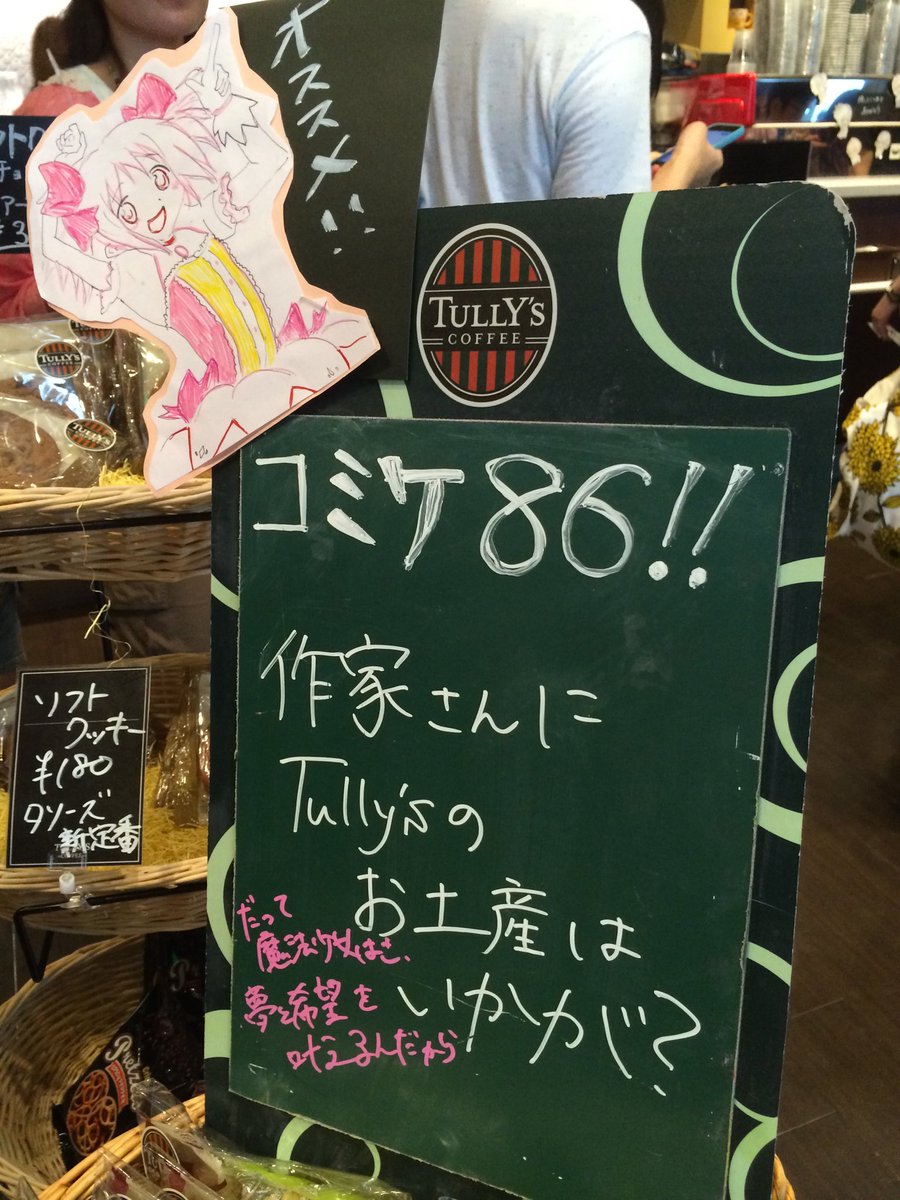 オススメ!!
TULLY'S
COFFEE
コミケ86!!
作家さんに
Tully'sの
お土産は
いかがじ?
だって
魔法少女はさ、
夢と希望を
叶えるんだから
ソフト
クッキー
¥180
タリーズ
新定番
TULLY'S
COFFEE
TULLY'S